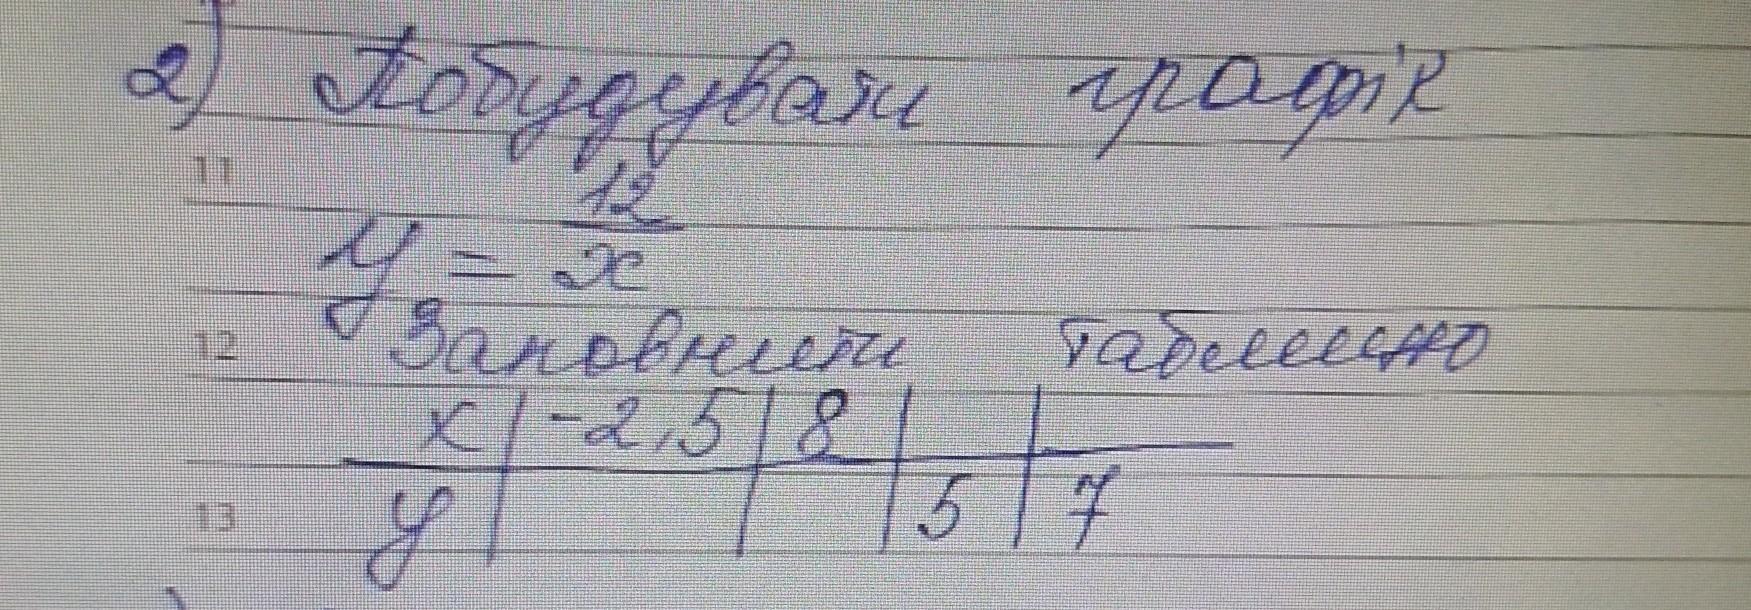 2) Побудувати графік
11
y = 12/x
Заповнити таблицю
12
x | -2,5 | 8 | |
y | | | 5 | 7
13